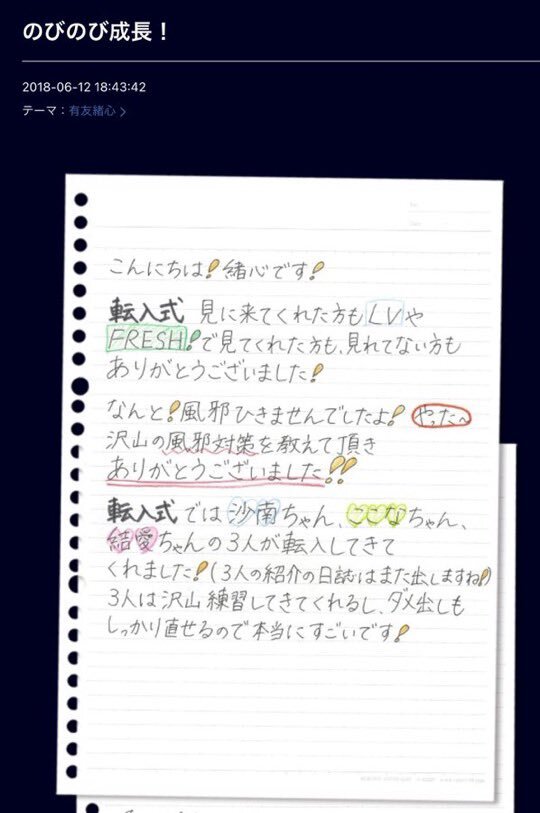 のびのび成長！
2018-06-12 18:43:42
テーマ：有友緒心 >
こんにちは!緒心です!
転入式 見に来てくれた方も LVや
FRESH!で見てくれた方も、見れてない方も
ありがとうございました!
なんと!風邪ひきませんでしたよ! やった〜
沢山の風邪対策を教えて頂き
ありがとうございました!!
転入式では沙南ちゃん、ここなちゃん、
結愛ちゃんの3人が転入してきて
くれました!(3人の紹介の日誌はまた出しますね!)
3人は沢山練習してきてくれるし、ダメ出しも
しっかり直せるので本当にすごいです!